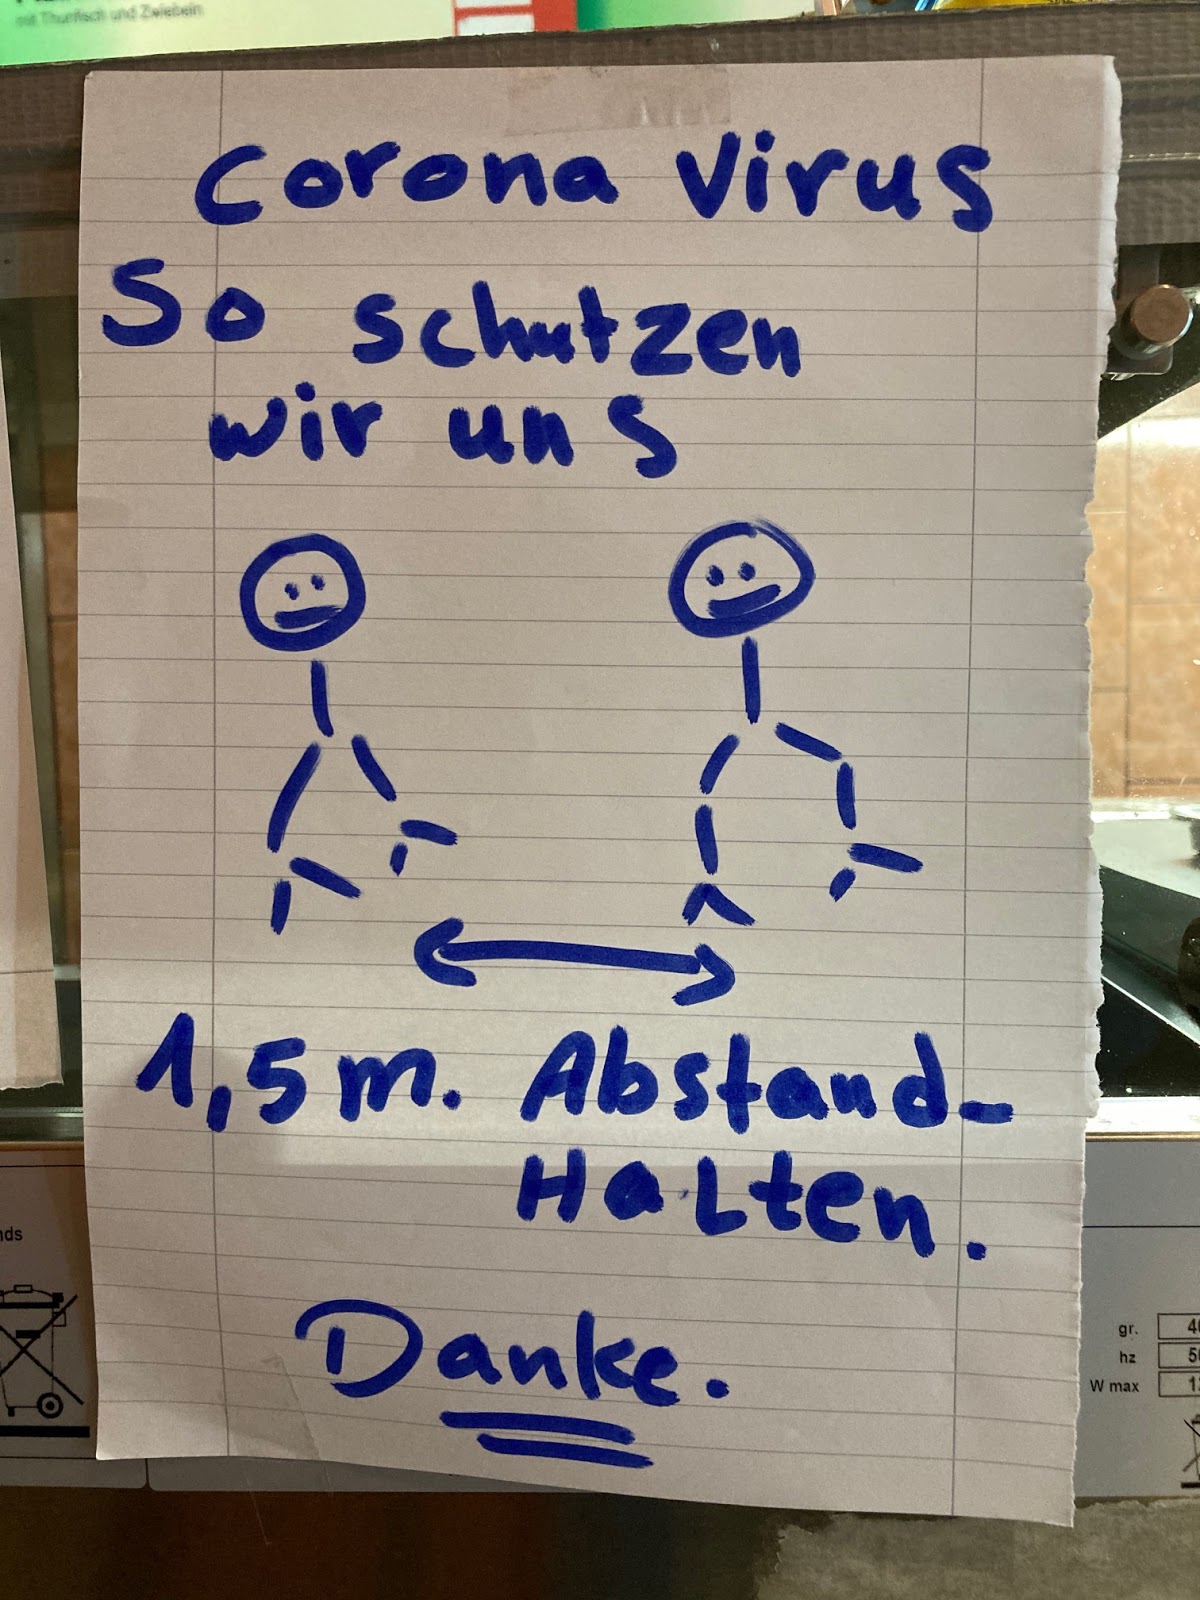 mit Thunfisch und Zwiebeln
Corona Virus
So schutzen
wir uns
1,5m. Abstand-
Halten.
Danke.
nds
gr.
hz
W max